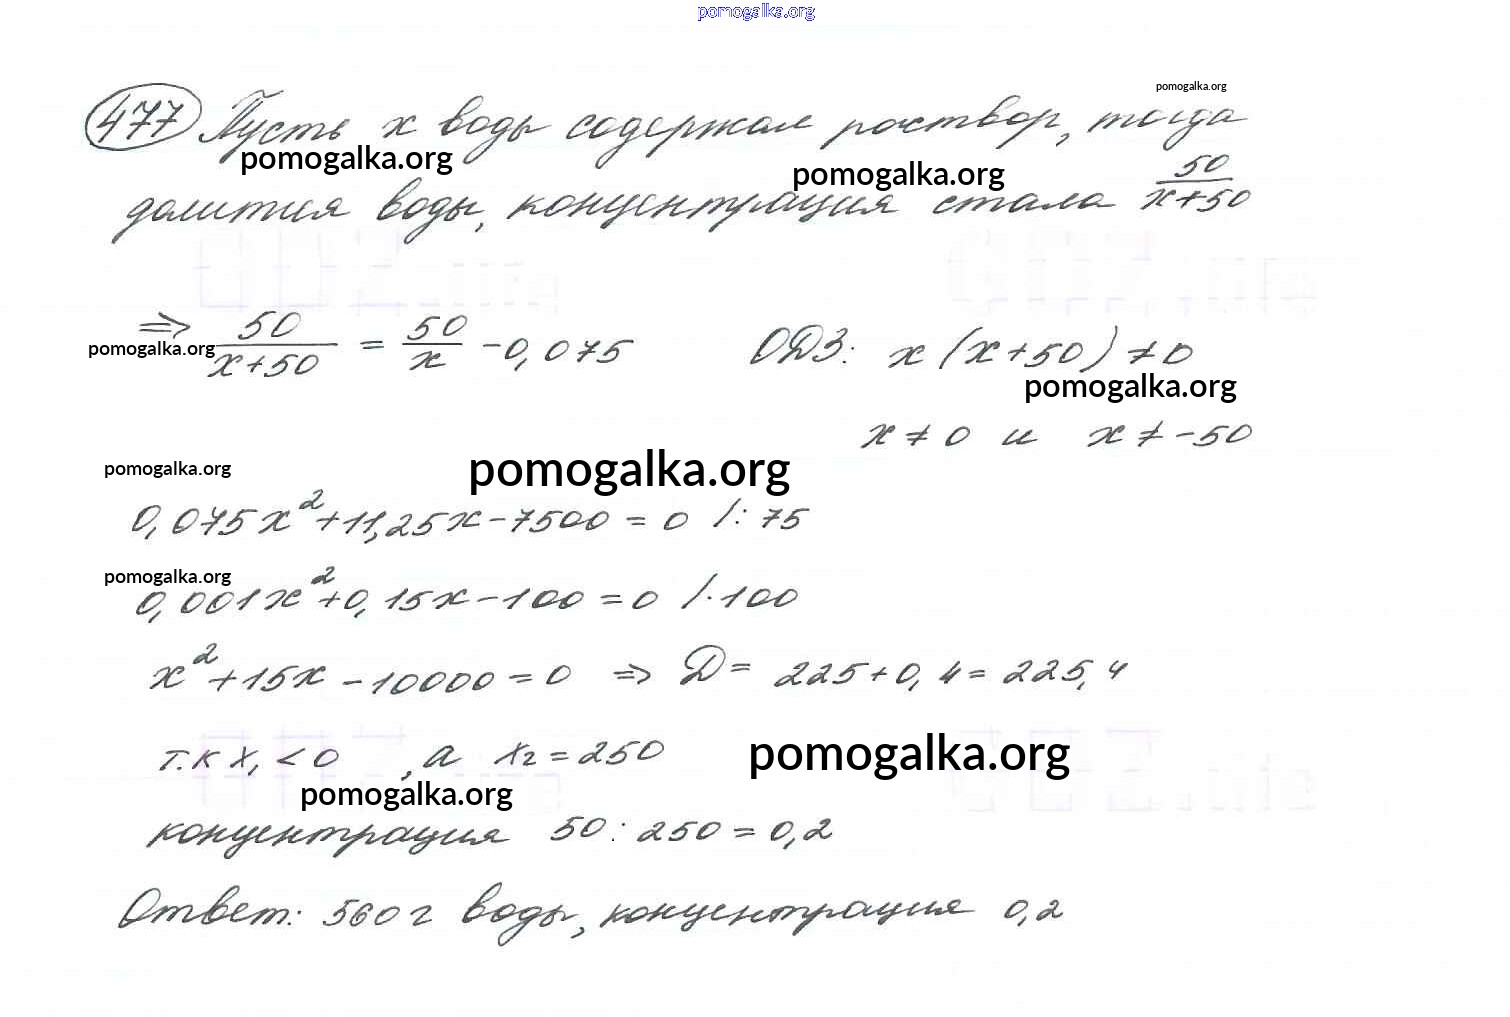 pomogalka.org
pomogalka.org
477 Пусть x воды содержал раствор, тогда
pomogalka.org
pomogalka.org
долития воды, концентрация стала 50/(x+50)
⇒ 50/(x+50) = 50/x - 0,075 ОДЗ: x (x+50) ≠ 0
pomogalka.org
pomogalka.org
x ≠ 0 и x ≠ -50
pomogalka.org
pomogalka.org
0,075x² + 11,25x - 7500 = 0 /: 75
pomogalka.org
0,001x² + 0,15x - 100 = 0 /·100
x² + 15x - 10000 = 0 ⇒ Д = 225 + 0,4 = 225,4
т.к x₁ < 0, а x₂ = 250
pomogalka.org
pomogalka.org
концентрация 50 : 250 = 0,2
Ответ: 560 г воды, концентрация 0,2